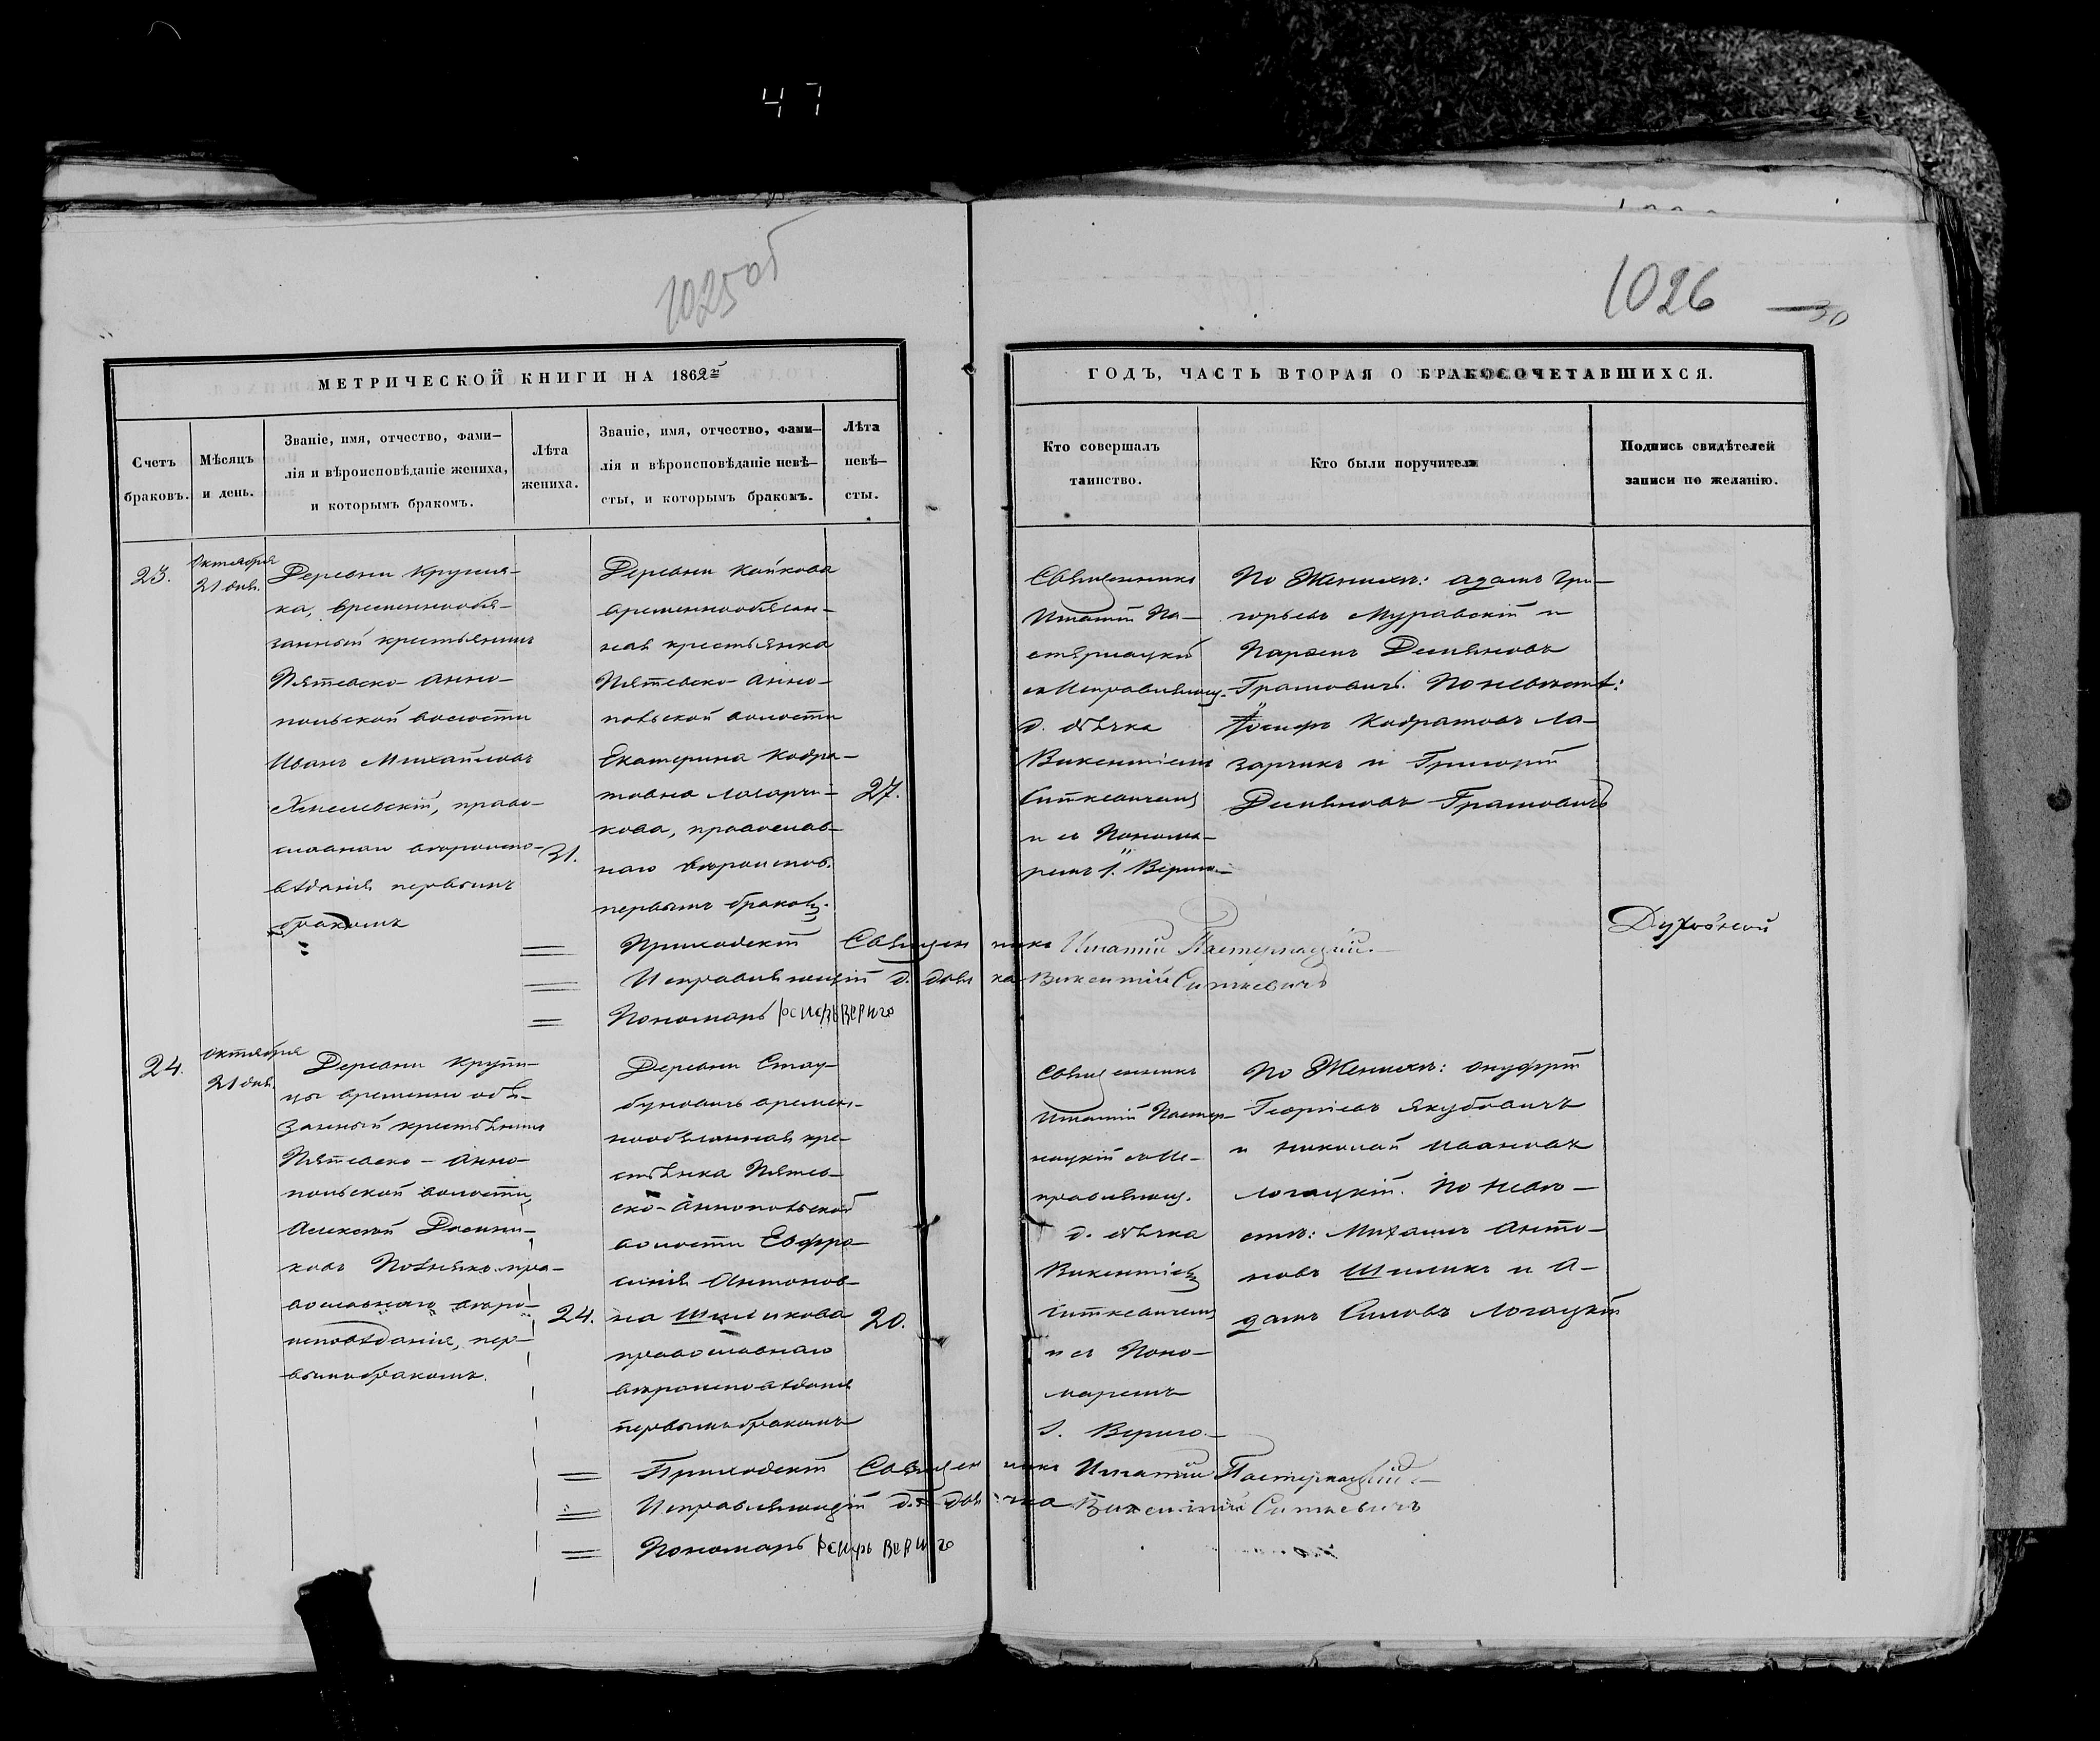 47
1025об
1026
30
МЕТРИЧЕСКОЙ КНИГИ НА 1862й
ГОДЪ, ЧАСТЬ ВТОРАЯ О БРАКОСОЧЕТАВШИХСЯ.
Счетъ
браковъ.
Мѣсяцъ
и день.
Званіе, имя, отчество, фами-
лія и вѣроисповѣданіе жениха,
и которымъ бракомъ.
Лѣта
жениха.
Званіе, имя, отчество, фами-
лія и вѣроисповѣданіе невѣ-
сты, и которымъ бракомъ.
Лѣта
невѣ-
сты.
Кто совершалъ
таинство.
Кто были поручители
Подпись свидѣтелей
записи по желанію.
23.
Октября
21 дня.
Деревни
ка, временнообя-
занный крестьянинъ
Пятевско-Анно-
польской волости
Иванъ Михайловъ
право-
славнаго вѣроиспо-
вѣданія первымъ
бракомъ
31.
Деревни Койкова
временнообязан-
ная крестьянка
Пятевско-Анно-
польской волости
Екатерина Кодра-
това
православ-
наго вѣроиспов.
первымъ бракомъ.
27.
Священникъ
Игнатій Па-
стернацкій
съ Исправляющ.
д. дьячка
Викентіемъ
Ситкевичемъ
и съ Понома-
ремъ І. Вериго-
По Женихѣ: Адамъ Гри-
горьевъ Муравскій и
Парфенъ Демьяновъ
Грамовичъ. По невѣстѣ:
Іосифъ Кодратовъ Ла-
зарчикъ и Григорій
Демьяновъ Грамовичъ
Приходскій Священникъ Игнатій Пастернацкій.
Исправляющій д. дьячка Викентій Ситкевичъ
Пономарь Іосифъ Вериго
24.
Октября
21 дня.
Деревни Крупи-
цы временно обя-
занный крестьянинъ
Пятевско-Анно-
польской волости,
Алексѣй
пра-
вославнаго вѣро-
исповѣданія, пер-
вымъ бракомъ.
24.
Деревни
времен-
нообязанная кре-
стьянка Пятев-
ско-Аннопольской
волости Евфро-
синія Антонов-
на Шиликова
православнаго
вѣроисповѣданія
первымъ бракомъ
20.
Священникъ
Игнатій Пастер-
нацкій съ Ис-
правляющ.
д. дьячка
Викентіемъ
Ситкевичемъ
и съ Поно-
маремъ
І. Вериго.-
По Женихѣ: Онуфрій
Георгіевъ Якубовичъ
и Николай Ивановъ
Логацкій. По невѣ-
стѣ: Михаилъ Анто-
новъ Шиликъ и А-
дамъ Симовъ Логацкій
Приходскій Священникъ Игнатій Пастернацкій
Исправляющій д. дьячка Викентій Ситкевичъ
Пономарь Іосифъ Вериго